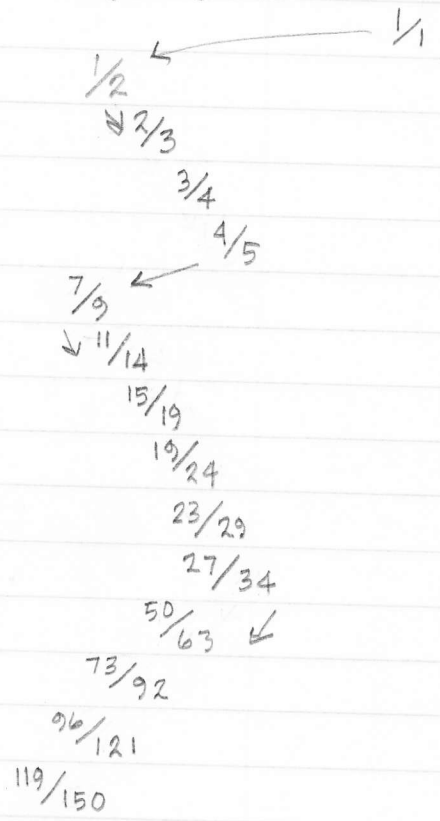 1/1
1/2
2/3
3/4
4/5
7/9
11/14
15/19
19/24
23/29
27/34
50/63
73/92
96/121
119/150